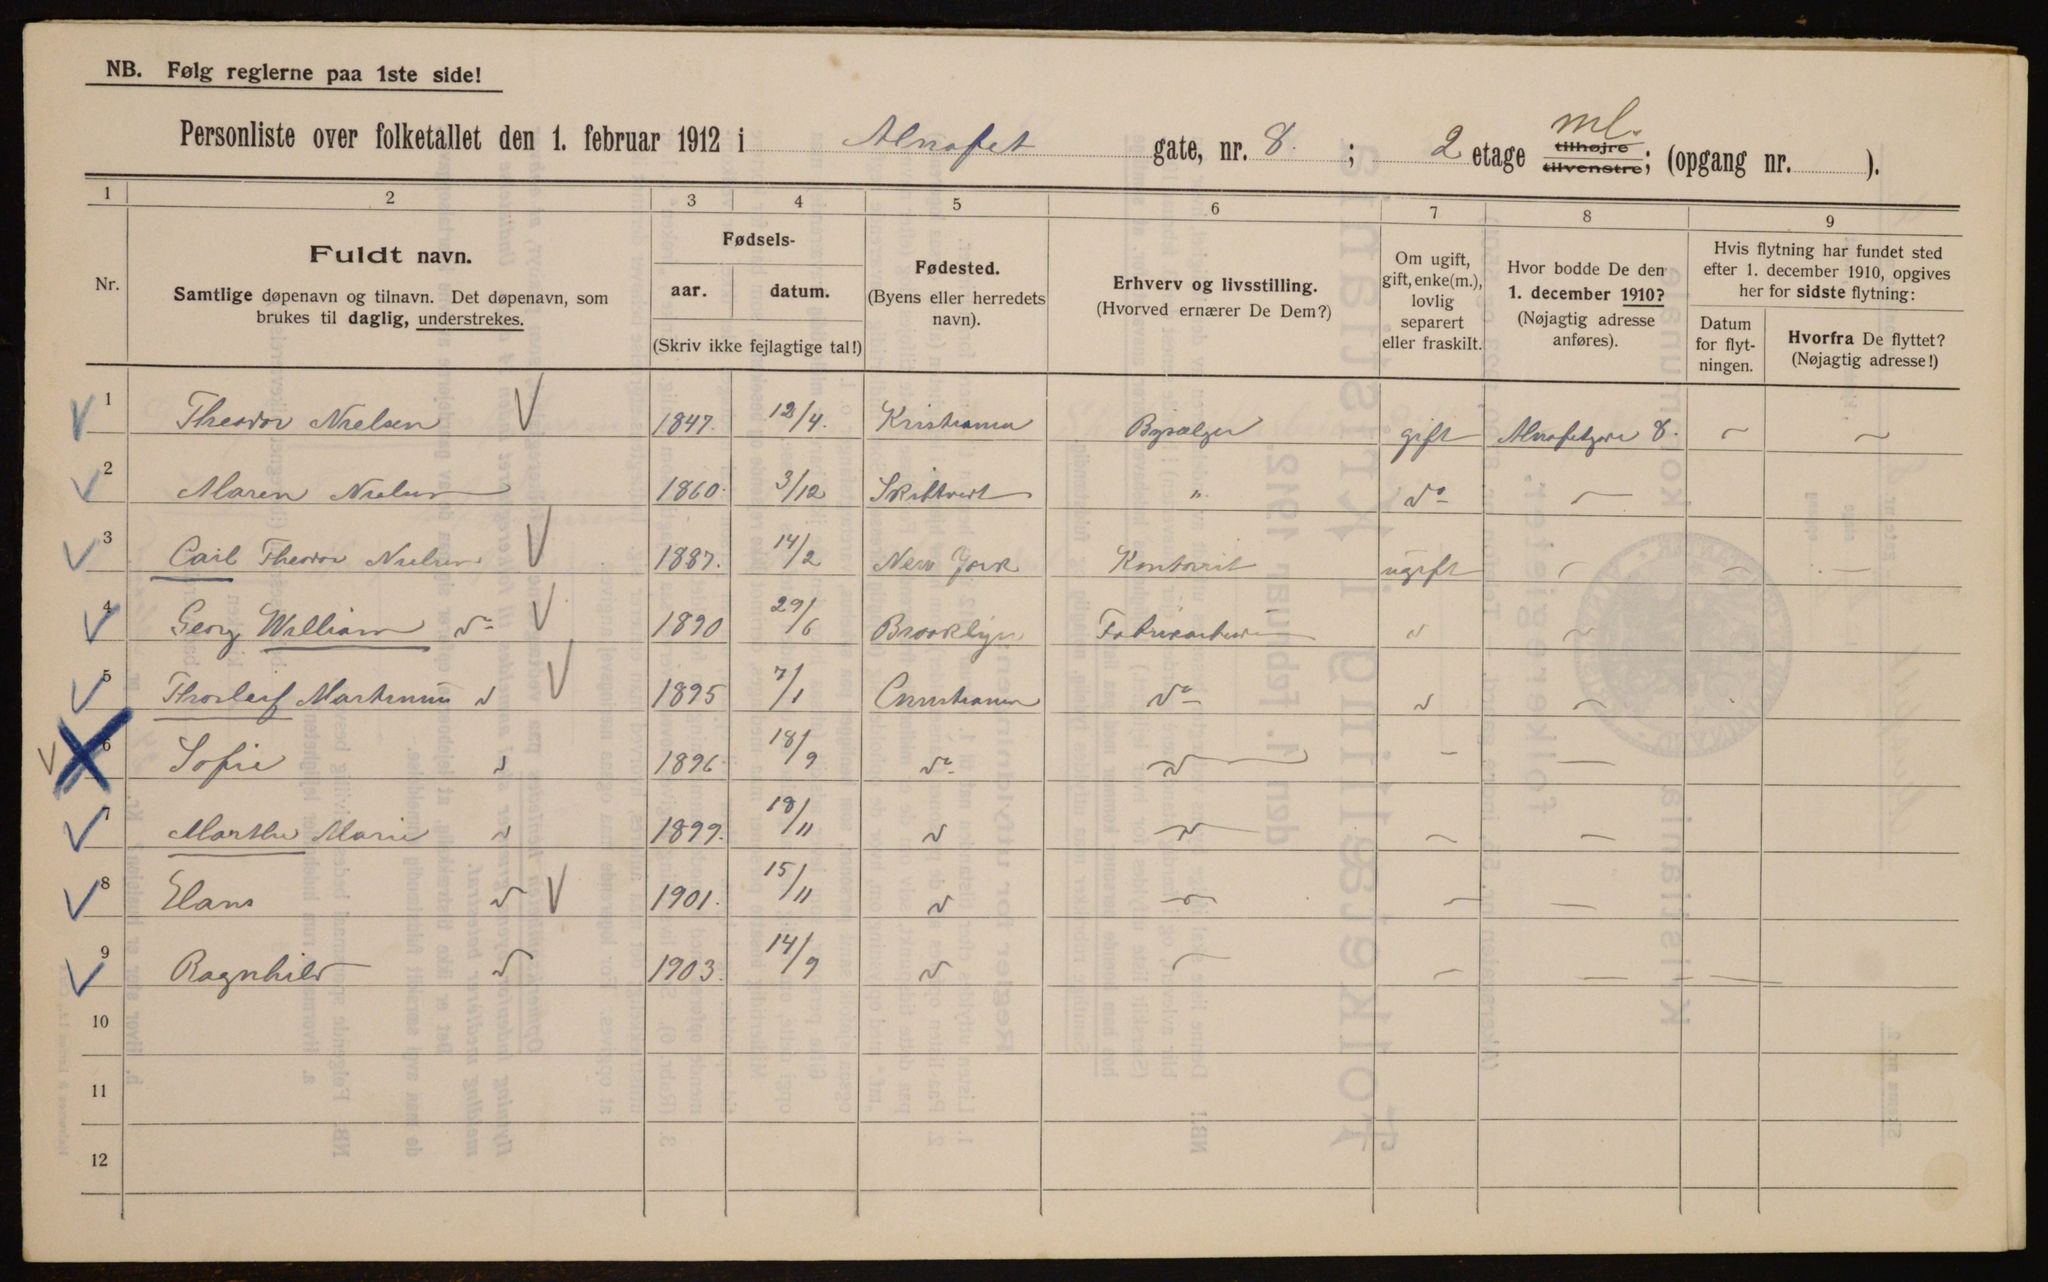 NB. Følg reglerne paa 1ste side!
Personliste over folketallet den 1. februar 1912 i Alnafet gate, nr. 8. ; 2 etage ml. tilhøjre tilvenstre; (opgang nr. ).
1 2 3 4 5 6 7 8 9
Nr.
Fuldt navn.
Samtlige døpenavn og tilnavn. Det døpenavn, som
brukes til daglig, understrekes.
Fødsels-
aar. datum.
(Skriv ikke fejlagtige tal!)
Fødested.
(Byens eller herredets
navn).
Erhverv og livsstilling.
(Hvorved ernærer De Dem?)
Om ugift,
gift, enke(m.),
lovlig
separert
eller fraskilt.
Hvor bodde De den
1. december 1910?
(Nøjagtig adresse
anføres).
Hvis flytning har fundet sted
efter 1. december 1910, opgives
her for sidste flytning:
Datum
for flyt-
ningen.
Hvorfra De flyttet?
(Nøjagtig adresse!)
1 Theodor Nielsen 1847. 12/4. Kristiania gift Alnafetgate 8. – –
2 Maren Nielsen 1860. 3/12 Skibtvert " do –
3 Carl Theodor Nielsen 1887. 14/2 New York Kontorist ugift – – –
4 Georg William do 1890 29/6 Brooklyn Fabrikarbeider d –
5 Thorleif Martinius d 1895 7/1 Christiania do d –
6 Sofie d 1896. 18/9 do d – –
7 Marthe Marie d 1899. 18/11 d d – –
8 Hans d 1901. 15/11 d – – –
9 Ragnhild d 1903. 14/9 d – – – –
10
11
12